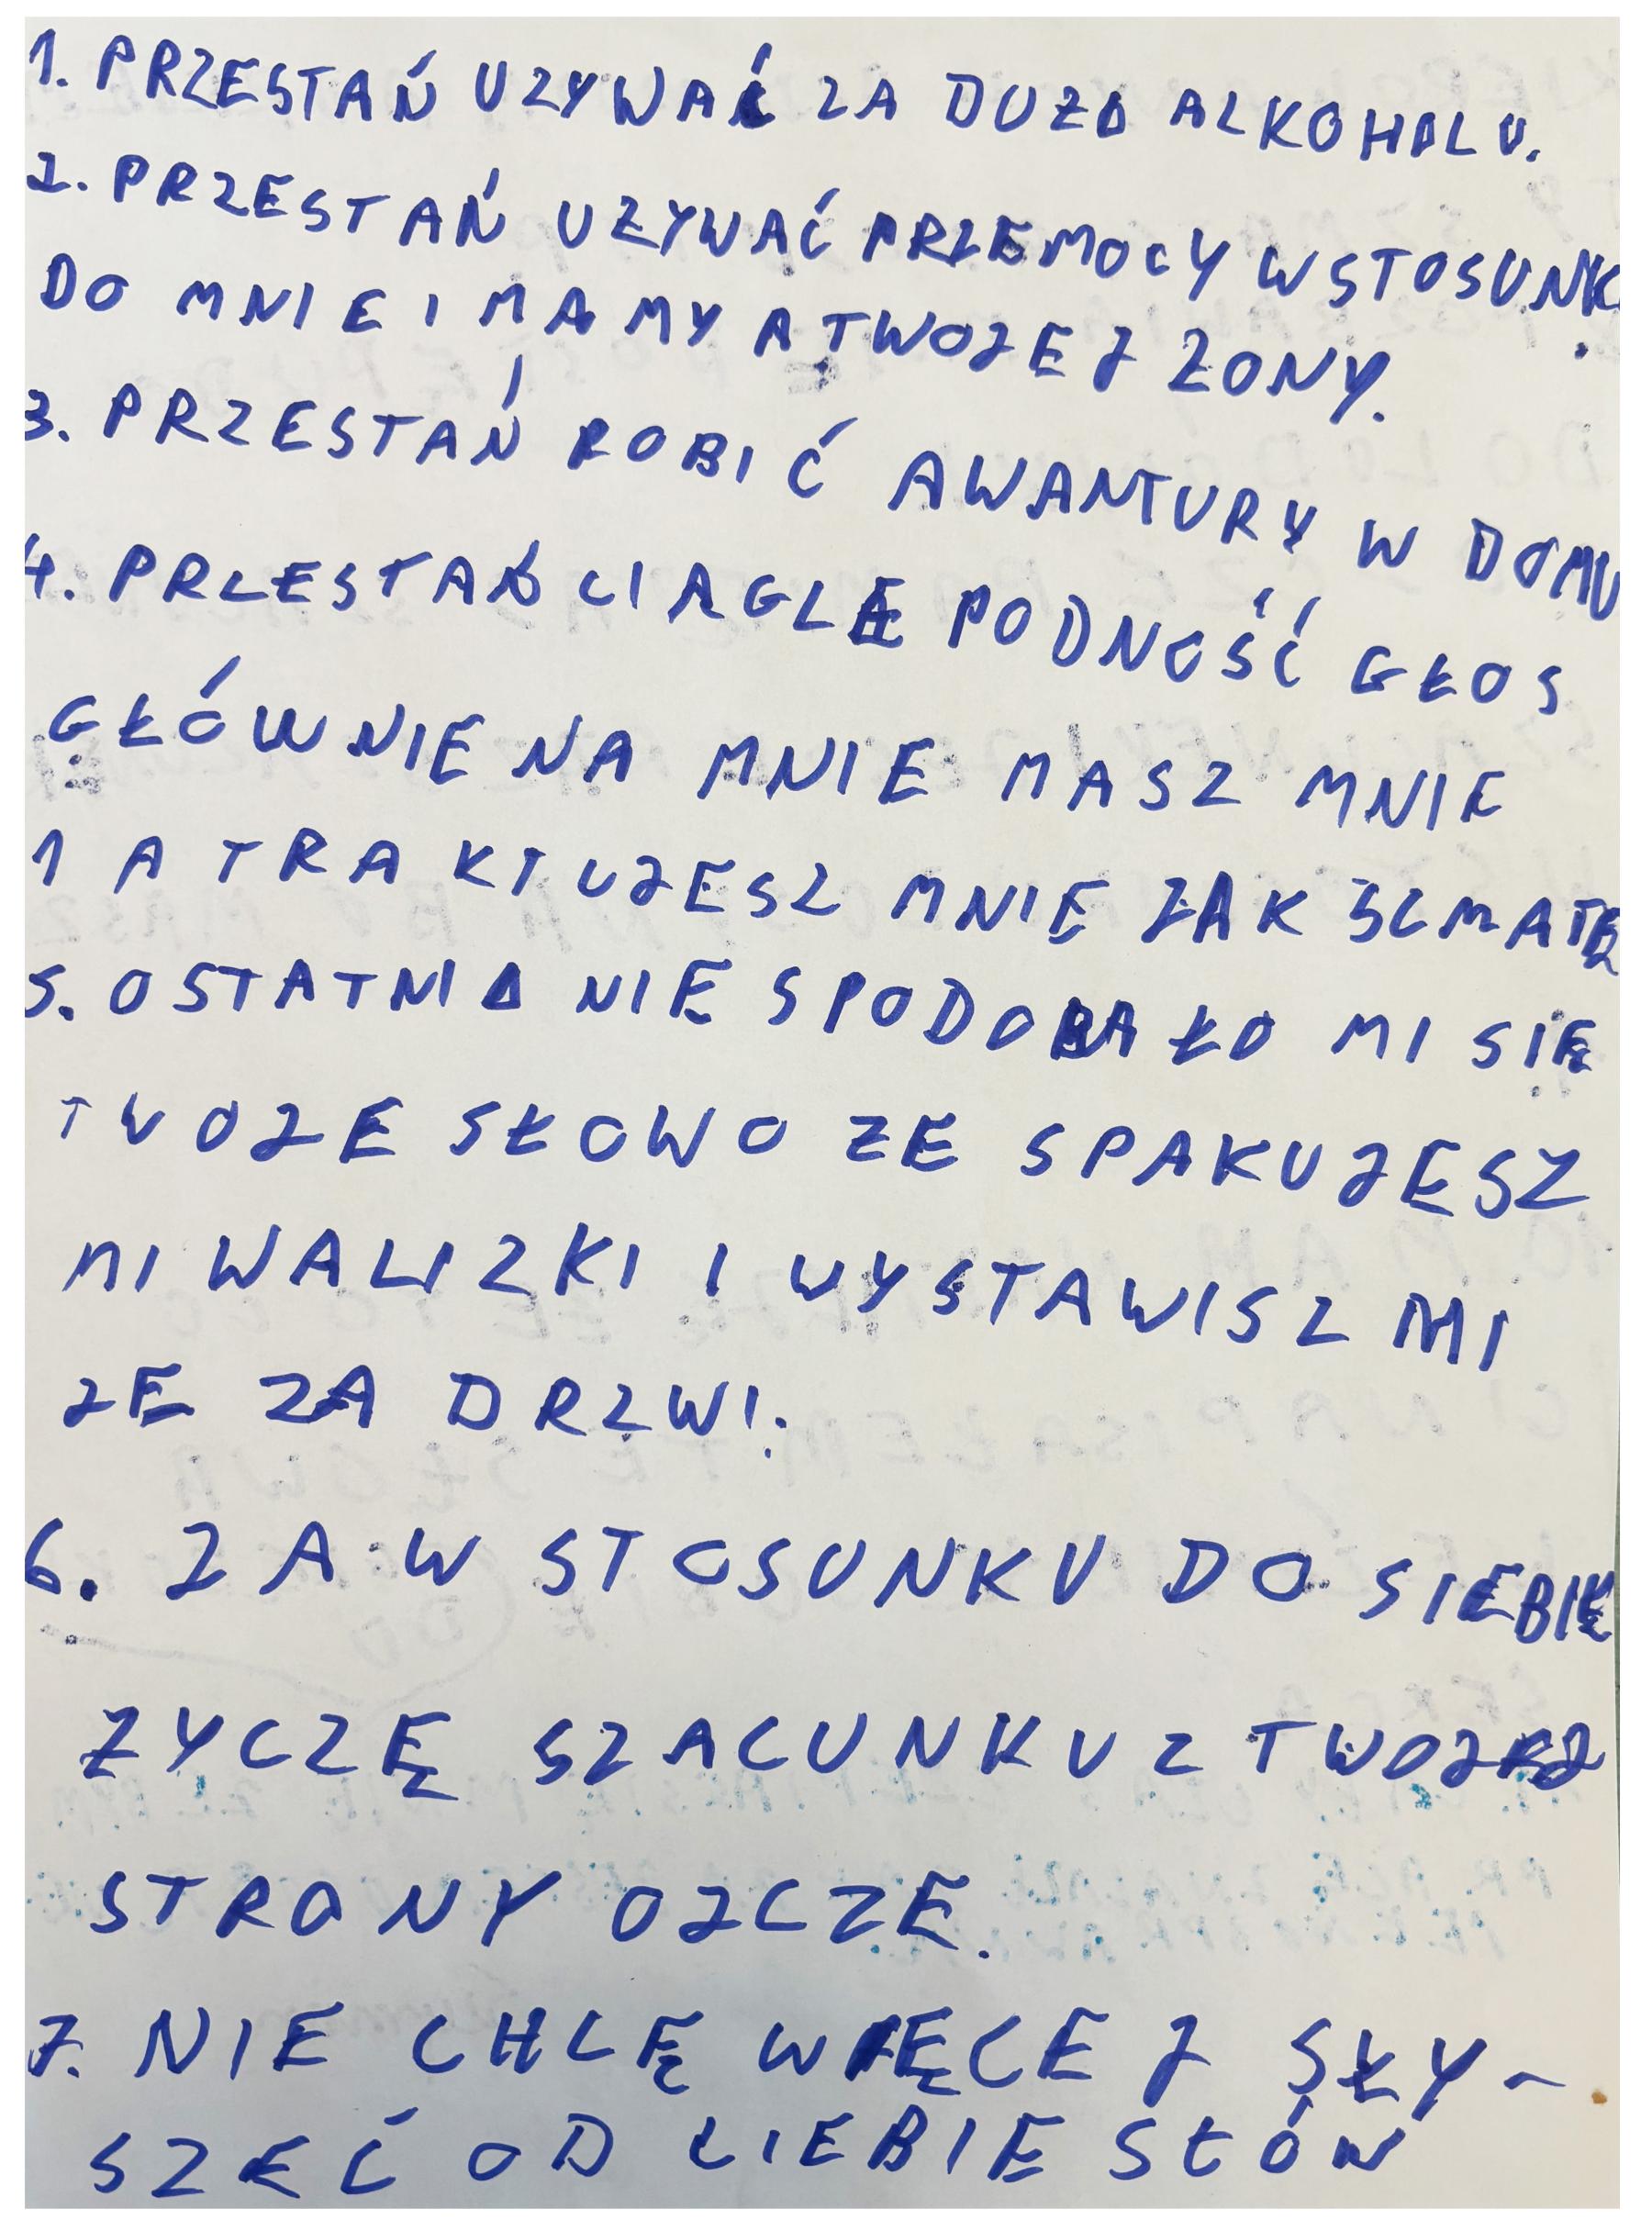 1. PRZESTAŃ UZYWAĆ ZA DUZO ALKOHOLU.
2. PRZESTAŃ UZYWAĆ PRZEMOCY W STOSUNK
DO MNIE I MAMY A TWOJEJ ZONY.
3. PRZESTAŃ ROBIĆ AWANTURY W DOMU
4. PRZESTAŃ CIAGLE PODNOŚĆ GŁOS
GŁÓWNIE NA MNIE MASZ MNIE
1 A TRAKTUJESZ MNIE JAK SZMATĘ
5. OSTATNIO NIE SPODOBAŁO MI SIĘ
TWOJE SŁOWO ZE SPAKUJESZ
MI WALIZKI I WYSTAWISZ MI
JE ZA DRZWI.
6. ZA W STOSUNKU DO SIEBIE
ZYCZĘ SZACUNKU Z TWOJEJ
STRONY OJCZE.
7. NIE CHCĘ WIĘCEJ SŁY-
SZEĆ OD CIEBIE SŁÓW